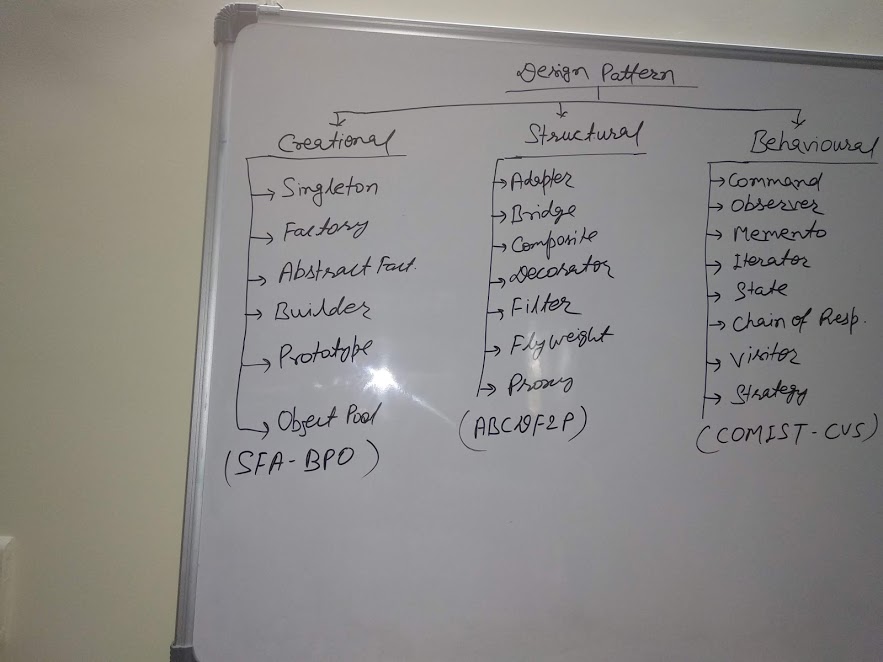 Design Pattern
Creational
Singleton
Factory
Abstract Fact.
Builder
Prototype
Object Pool
(SFA-BPO)
Structural
Adapter
Bridge
Composite
Decorator
Filter
Flyweight
Proxy
(ABCDF2P)
Behavioural
Command
Observer
Memento
Iterator
State
Chain of Resp.
Visitor
Strategy
(COMIST-CVS)